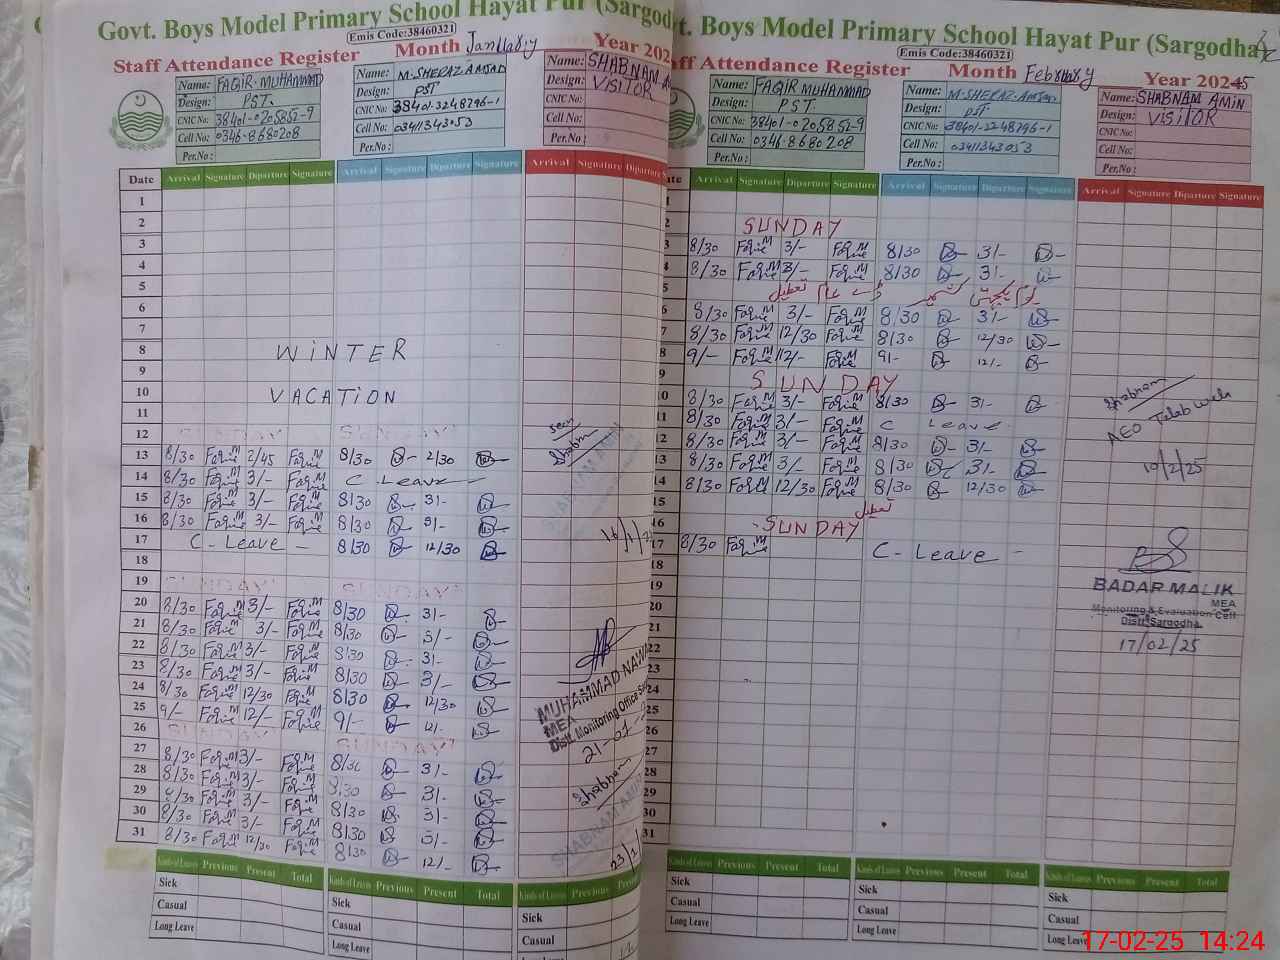 Govt. Boys Model Primary School Hayat Pur (Sargod
Emis Code:38460321
Staff Attendance Register Month January Year 202
Name: FAQIR MUHAMMAD
Design: PST.
CNIC No: 38401-0205852-9
Cell No: 0346-8680208
Per.No:
Name: M-SHERAZ AMJAD
Design: PST
CNIC No: 38401-3248796-1
Cell No: 03411343053
Per.No:
Name: SHABNAM A
Design: VISITOR
CNIC No:
Cell No:
Per.No:
Date Arrival Signature Diparture Signature Arrival Signature Diparture Signature Arrival Signature Diparture S
1
2
3
4
5
6
7
8 WINTER
9
10 VACATION
11
12 SUNDAY SUNDAY
13 8/30 2/45 8/30 2/30
14 8/30 3/- C Leave
15 8/30 3/- 8/30 3/-
16 8/30 3/- 8/30 3/-
17 C-Leave - 8/30 12/30
18
19 SUNDAY SUNDAY
20 8/30 3/- 8/30 3/-
21 8/30 3/- 8/30 3/-
22 8/30 3/- 8/30 3/-
23 8/30 3/- 8/30 3/-
24 8/30 12/30 8/30 12/30
25 9/- 12/- 9/- 12/-
26 SUNDAY SUNDAY
27 8/30 3/- 8/30 3/-
28 8/30 3/- 8/30 3/-
29 8/30 3/- 8/30 3/-
30 8/30 3/- 8/30 3/-
31 8/30 12/30 8/30 12/-
Seen
Shabnam
SHABNAM AMIN
16/1/2
MUHAMMAD NAWA
MEA
Distt. Monitoring Office
21-01-
Shabnam
SHABNAM AMIN
23/1
Kinds of Leaves Previous Present Total
Sick
Casual
Long Leave
Kinds of Leaves Previous Present Total
Sick
Casual
Long Leave
Kinds of Leaves Previous Present
Sick
Casual
t. Boys Model Primary School Hayat Pur (Sargodha)
Emis Code:38460321
aff Attendance Register Month February Year 2025
Name: FAQIR MUHAMMAD
Design: PST.
CNIC No: 38401-0205852-9
Cell No: 0346-8680208
Per.No:
Name: M-SHERAZ-AMJAD
Design: PST
CNIC No: 38401-3248796-1
Cell No: 03411343053
Per.No:
Name: SHABNAM AMIN
Design: VISITOR
CNIC No:
Cell No:
Per.No:
ate Arrival Signature Diparture Signature Arrival Signature Diparture Signature Arrival Signature Diparture Signature
1
2 SUNDAY
3 8/30 3/- 8/30 3/-
4 8/30 3/- 8/30 3/-
5 یوم یکجہتی کشمیر عام تعطیل
6 8/30 3/- 8/30 3/-
7 8/30 12/30 8/30 12/30
8 9/- 12/- 9/- 12/-
9 SUNDAY
10 8/30 3/- 8/30 3/-
11 8/30 3/- C Leave
12 8/30 3/- 8/30 3/-
13 8/30 3/- 8/30 3/-
14 8/30 12/30 8/30 12/30
15 تعطیل
16 SUNDAY
17 8/30 C-Leave -
18
19
20
21
22
23
24
25
26
27
28
29
30
31
Shabnam
AEO
10/2/25
BADAR MALIK
MEA
Monitoring & Evaluation Cell
Distt. Sargodha.
17/02/25
Kinds of Leaves Previous Present Total
Sick
Casual
Long Leave
Kinds of Leaves Previous Present Total
Sick
Casual
Long Leave
Kinds of Leaves Previous Present Total
Sick
Casual
Long Leave
17-02-25 14:24